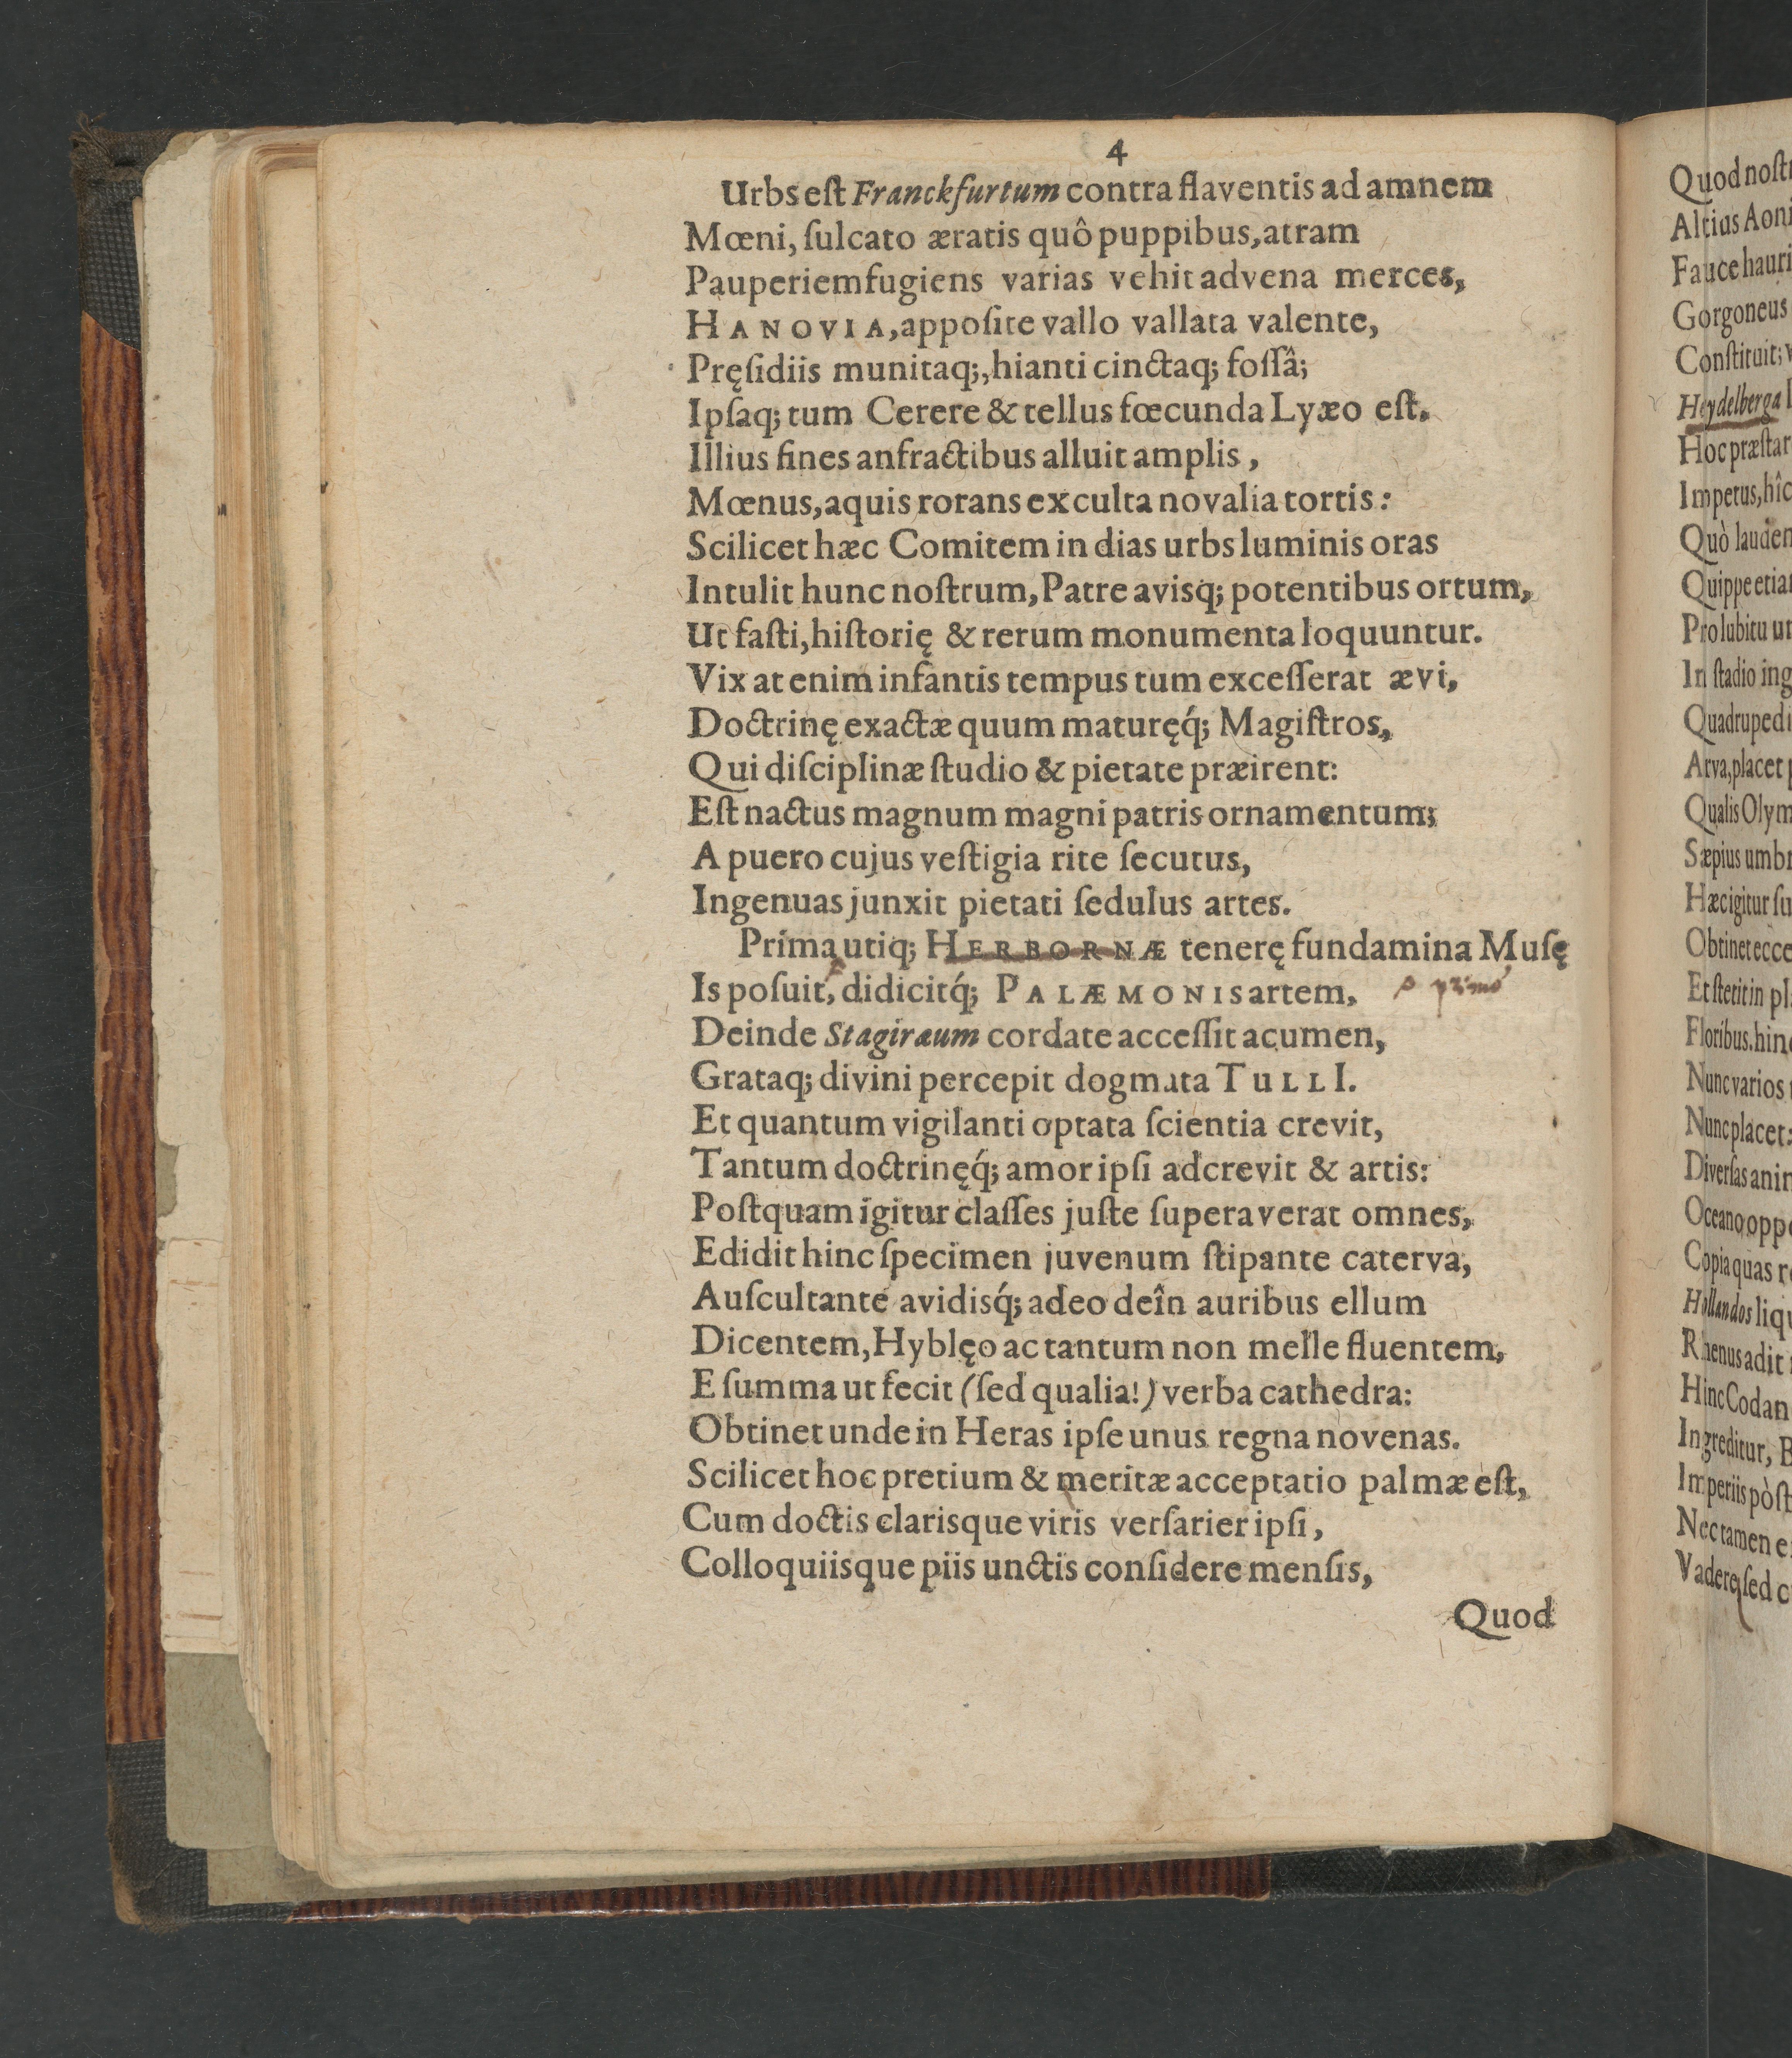 4
Urbs eſt Franckfurtum contra flaventis ad amnem
Mœni, ſulcato æratis quô puppibus, atram
Pauperiem fugiens varias vehit advena merces,
HANOVIA, appoſite vallo vallata valente,
Pręſidiis munitaq;, hianti cinctaq; foſſâ;
Ipſaq; tum Cerere & tellus fœcunda Lyæo eſt.
Illius fines anfractibus alluit amplis,
Mœnus, aquis rorans exculta novalia tortis:
Scilicet hæc Comitem in dias urbs luminis oras
Intulit hunc noſtrum, Patre avisq; potentibus ortum,
Ut faſti, hiſtorię & rerum monumenta loquuntur.
Vix at enim infantis tempus tum exceſſerat ævi,
Doctrinę exactæ quum maturęq́; Magiſtros,
Qui diſciplinæ ſtudio & pietate præirent:
Eſt nactus magnum magni patris ornamentum;
A puero cujus veſtigia rite ſecutus,
Ingenuas junxit pietati ſedulus artes.
Prima utiq; HERBORNÆ tenerę fundamina Muſę
Is poſuit, didicitq́; PALÆMONIS artem, primò
Deinde Stagiræum cordate acceſſit acumen,
Grataq; divini percepit dogmata TULLI.
Et quantum vigilanti optata ſcientia crevit,
Tantum doctrinęq́; amor ipſi adcrevit & artis:
Poſtquam igitur claſſes juſte ſuperaverat omnes,
Edidit hinc ſpecimen juvenum ſtipante caterva,
Auſcultante avidisq́; adeo deîn auribus ellum
Dicentem, Hyblęo ac tantum non melle fluentem,
E ſumma ut fecit (ſed qualia!) verba cathedra:
Obtinet unde in Heras ipſe unus regna novenas.
Scilicet hoc pretium & meritæ acceptatio palmæ eſt,
Cum doctis clarisque viris verſarier ipſi,
Colloquiisque piis unctis conſidere menſis,
Quod
Quod
Altius
Fauce
Gorgoneus
Conſtituit;
Heydelberga
Hoc
Impetus, hîc
Quò
Quippe
Pro lubitu ut
In ſtadio
Arva, placet
Qualis
Sæpius
Hæc igitur
Obtinet ecce
Et ſtetit in
Floribus. hinc
Nunc varios
Nunc placet:
Diverſas
Oceano
Copia quas
Hollandos
Rhenus adit
Hinc
Ingreditur,
Imperiis pòſt
Nec tamen
Vadere, ſed